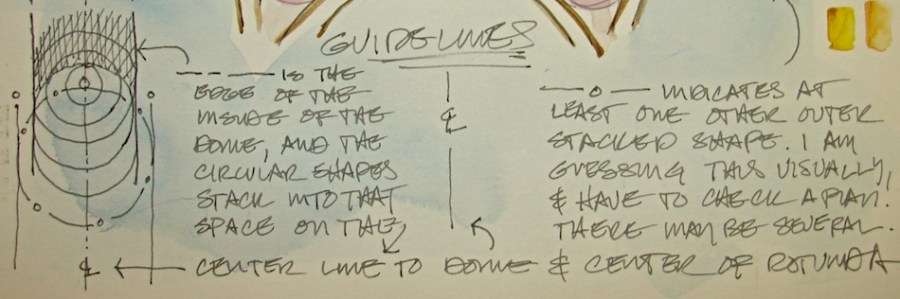 GUIDELINES
— - — IS THE
EDGE OF THE
INSIDE OF THE
DOME, AND THE
CIRCULAR SHAPES
STACK INTO THAT
SPACE ON THE
℄
—o— INDICATES AT
LEAST ONE OTHER OUTER
STACKED SHAPE. I AM
GUESSING THIS VISUALLY,
& HAVE TO CHECK A PLAN.
THERE MAY BE SEVERAL.
℄ ← CENTER LINE TO DOME & CENTER OF ROTUNDA